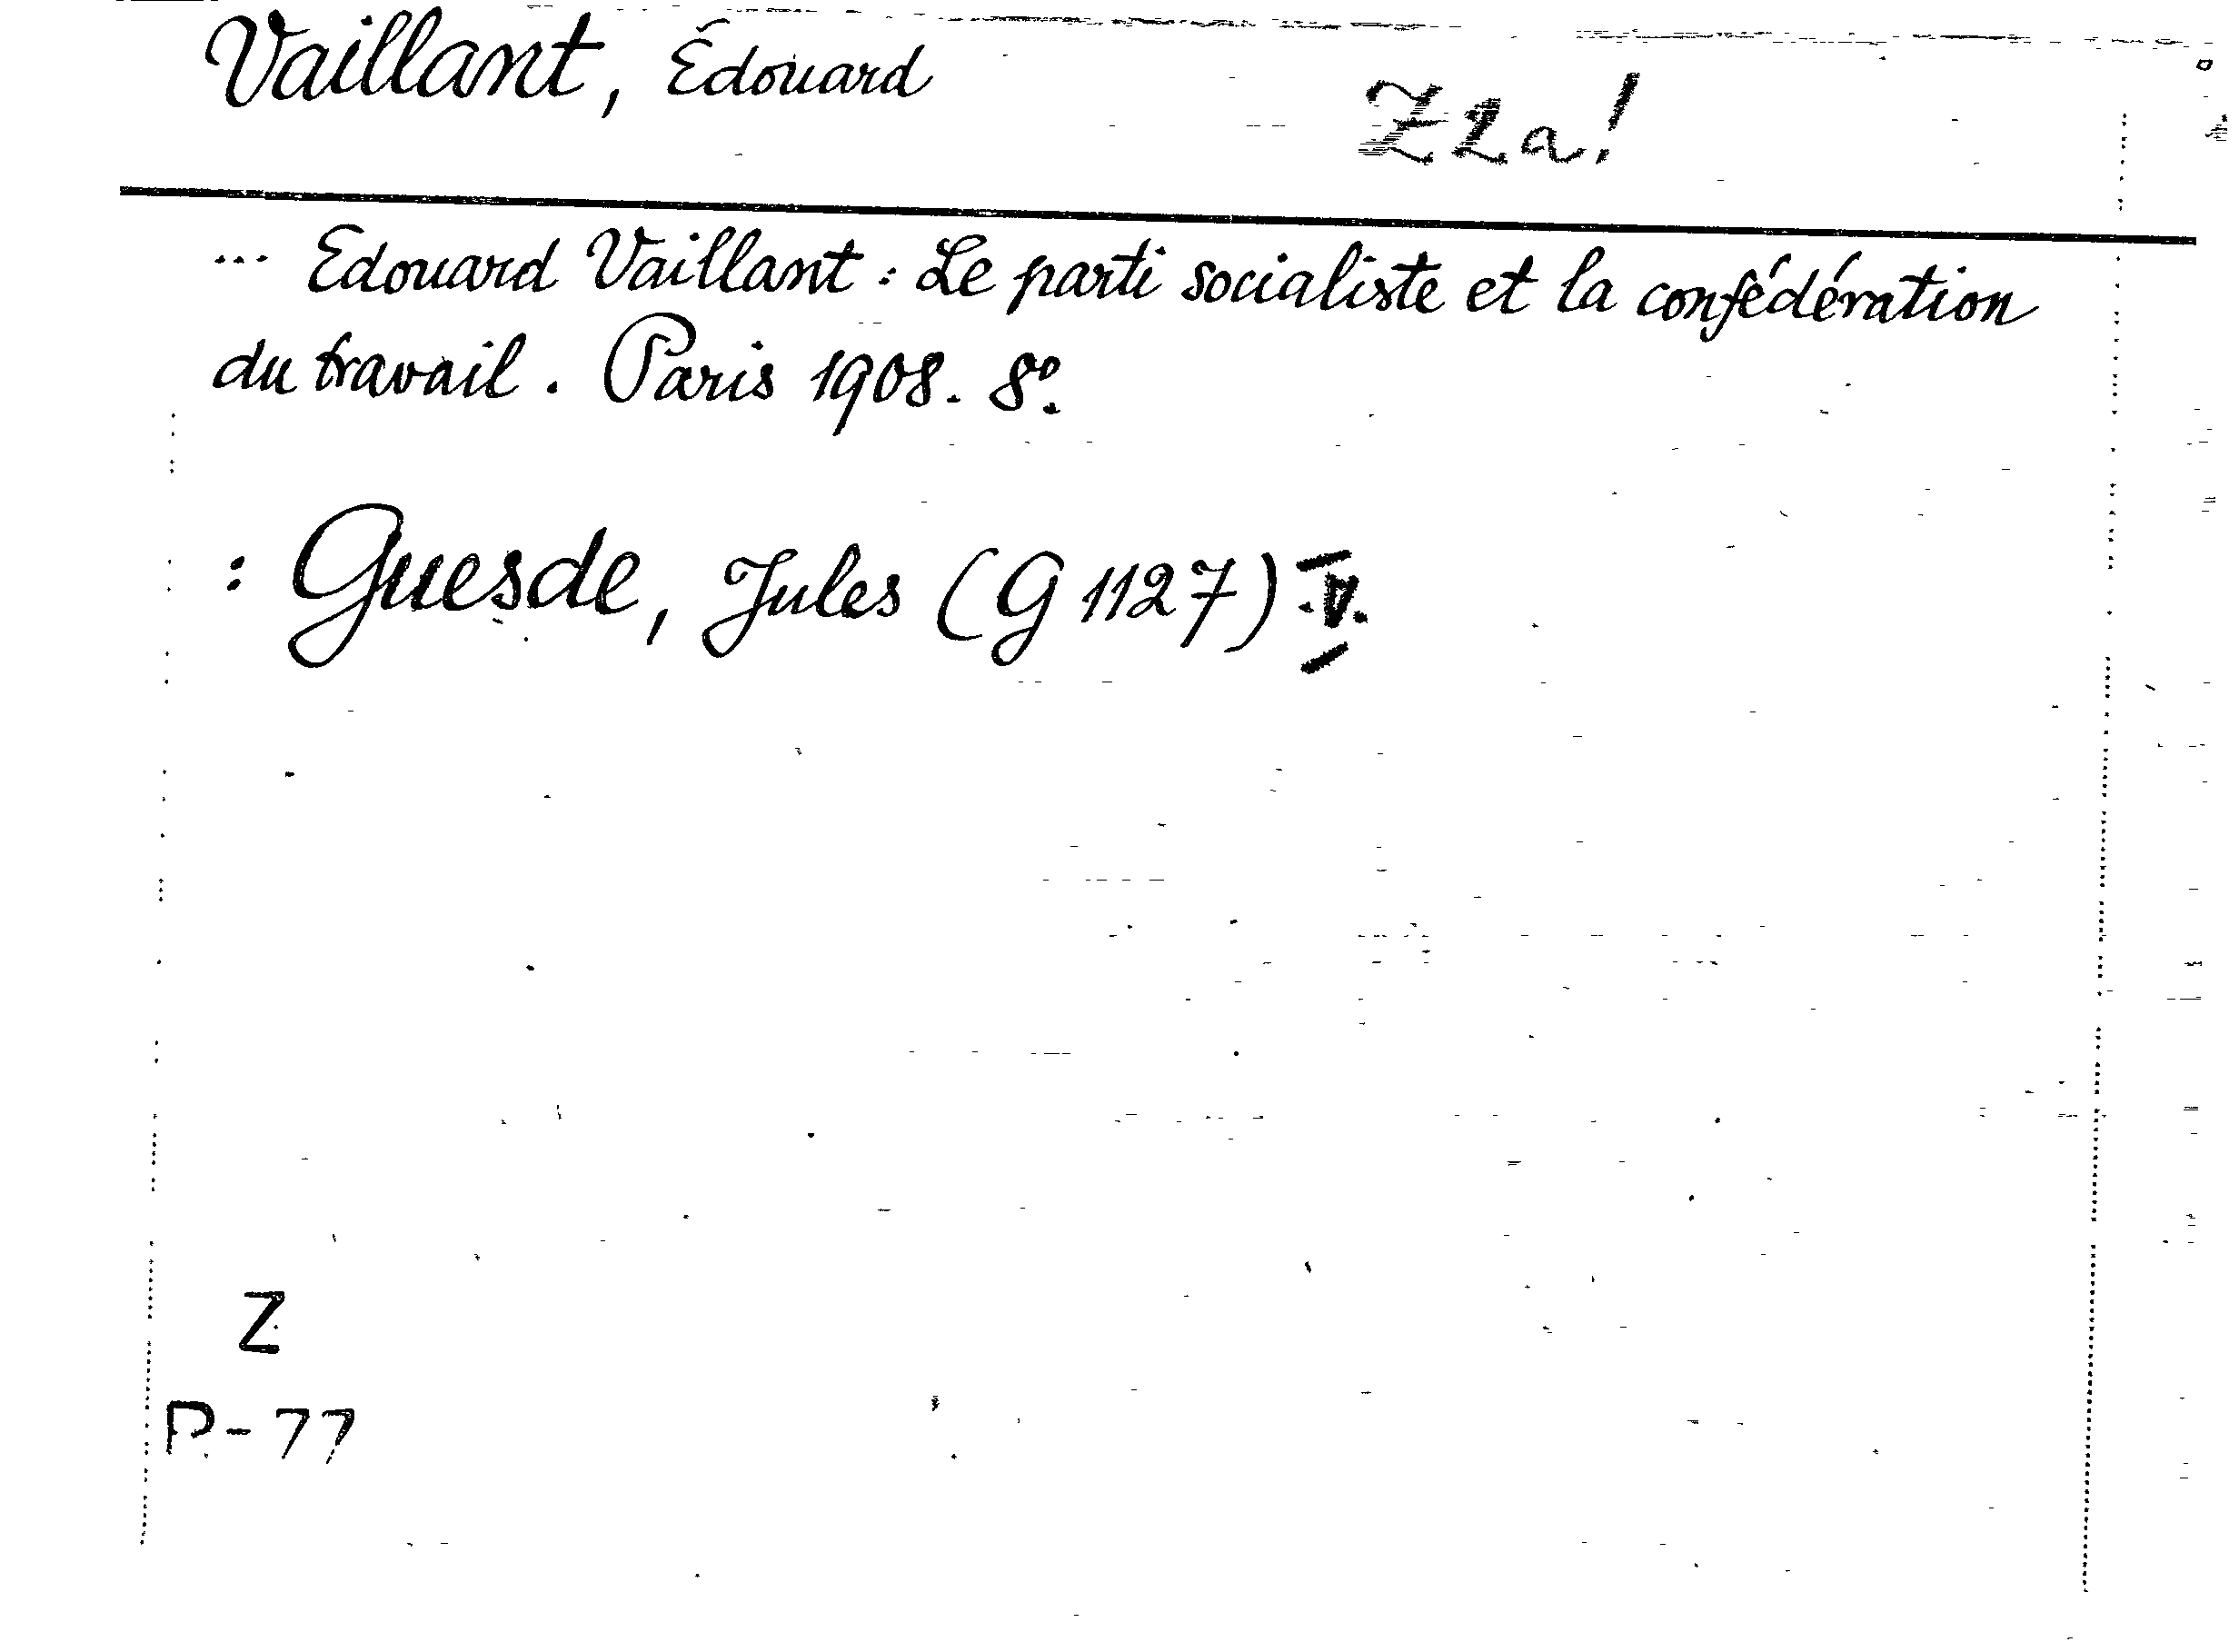 Vaillant, Édouard
Z2a!
... Edouard Vaillant: Le parti socialiste et la confédération
du travail. Paris 1908. 8º.
: Guesde, Jules (G 1127) V.
Z
P-77